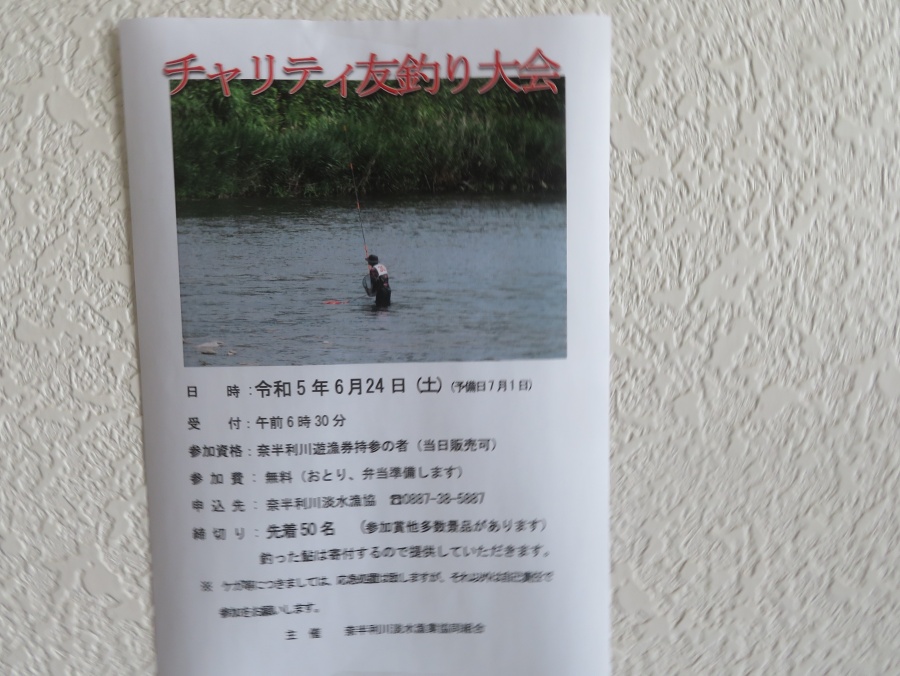 チャリティ友釣り大会
日 時：令和5年6月24日（土）（予備日7月1日）
受 付：午前6時30分
参加資格：奈半利川遊漁券持参の者（当日販売可）
参加費：無料（おとり、弁当準備します）
申込先：奈半利川淡水漁協 ☎0887-38-5887
締切り：先着50名 （参加賞他多数景品があります）
釣った鮎は寄付するので提供していただきます。
※ ケガ等につきましては、応急処置は致しますが、それ以外は自己責任で
参加をお願いします。
主 催 奈半利川淡水漁業協同組合